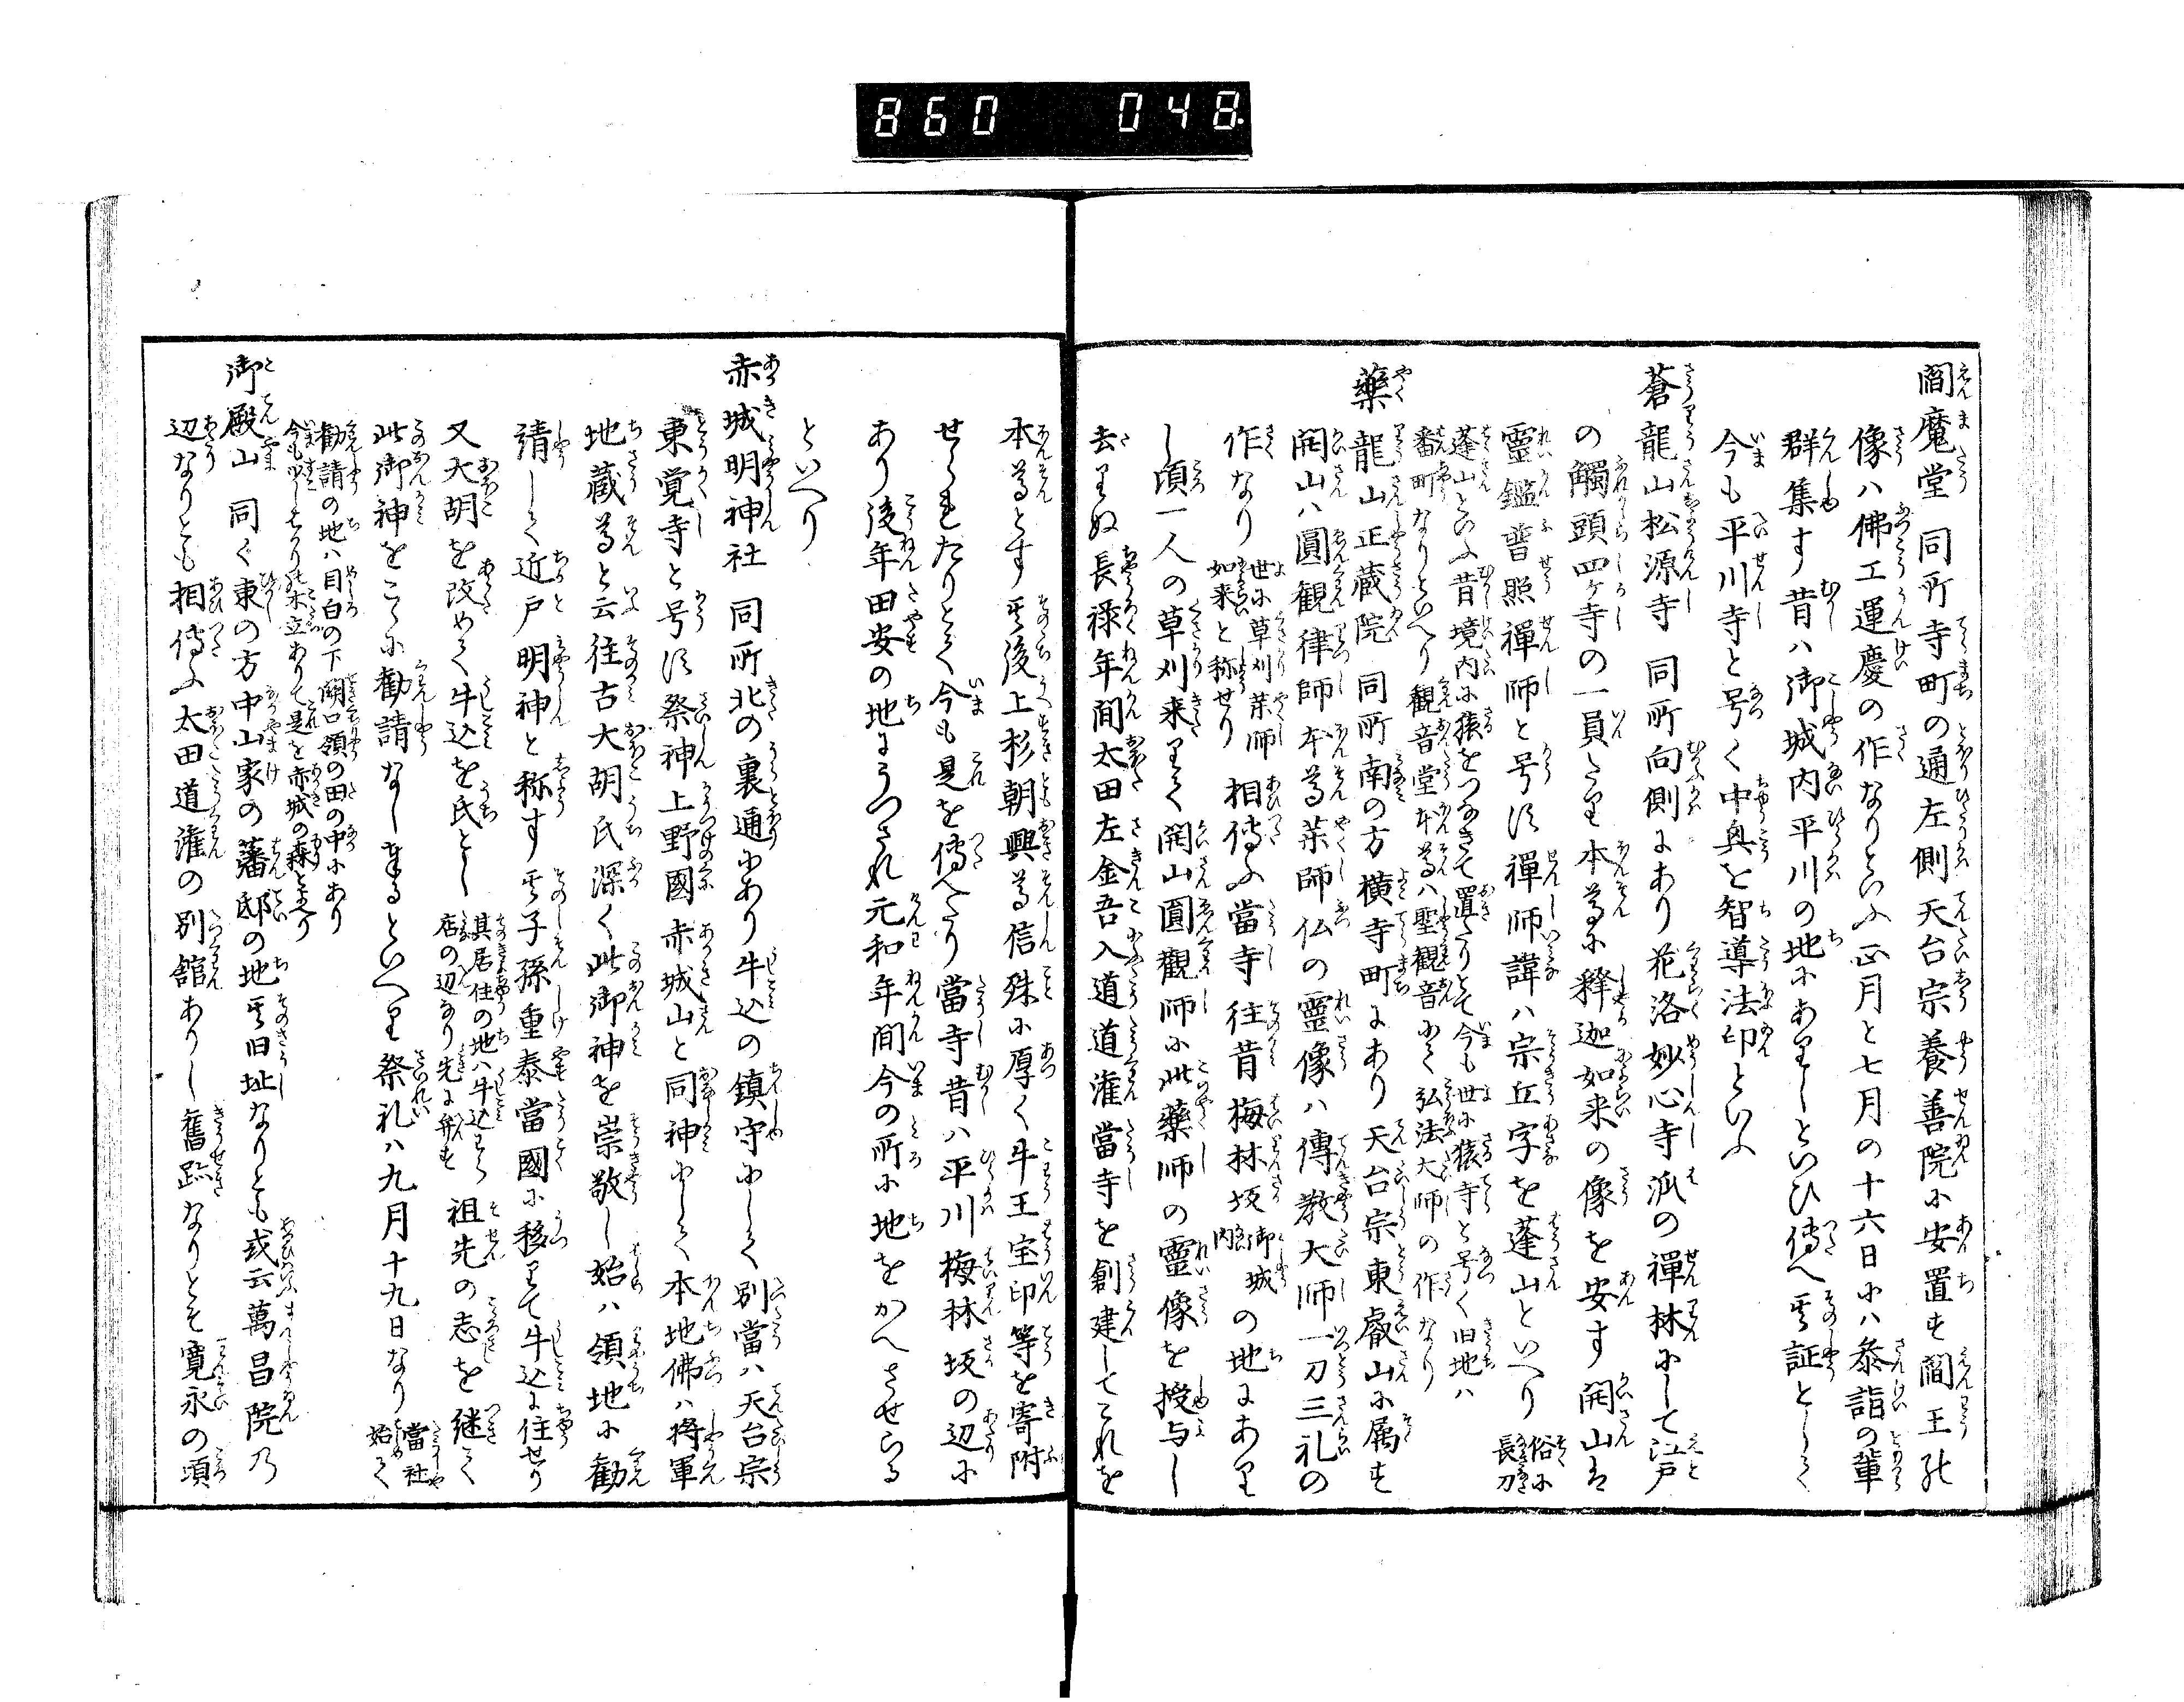 860 048
閻魔堂 同所寺町の通左側天台宗養善院に安置す閻王の
像ハ佛工運慶の作なりといふ正月と七月の十六日にハ参詣の輩
群集す昔ハ御城内平川の地にありしといひ傳へ其証として
今も平川寺と号く中興を智導法印といふ
蒼龍山松源寺 同所向側にあり花洛妙心寺派の禅林にして江戸
の觸頭四ケ寺の一員たり本尊に釋迦如来の像を安す開山を
靈鑑普照禪師と号す禪師諱ハ宗丘字を蓬山といへり 俗に長刀
蓬山といふ昔境内に猿をつなきて置たりとて今も世に猿寺と号く旧地ハ
番町なりといへり觀音堂本尊ハ聖觀音にて弘法大師の作なり
藥龍山正蔵院 同所南の方横寺町にあり天台宗東叡山に属す
開山ハ圓観律師本尊薬師仏の靈像ハ傳教大師一刀三礼の
作なり 世に草刈薬師如来と称せり 相傳ふ當寺往昔梅林坂 御城内 の地にあり
し頃一人の草刈来りて開山圓觀師に此藥師の靈像を授与し
去りぬ長禄年間太田左金吾入道道潅當寺を創建してこれを
本尊とす其後上杉朝興尊信殊に厚く牛王宝印等を寄附
せられたりとて今も是を傳へたり當寺昔ハ平川梅林坂の辺に
あり後年田安の地にうつされ元和年間今の所に地をかへさせらる
といへり
赤城明神社 同所北の裏通にあり牛込の鎮守にして別當ハ天台宗
東覚寺と号す祭神上野國赤城山と同神にして本地佛ハ将軍
地蔵尊と云往古大胡氏深く此御神を崇敬し始ハ領地に勸
請して近戸明神と称す其子孫重泰當國に移りて牛込に住せり
又大胡を改めて牛込を氏とし 其居住の地ハ牛込わら店の辺なり先に弁す 祖先の志を継て
此御神をこゝに勸請なし奉るといへり祭礼ハ九月十九日なり 當社始て
勧請の地ハ目白の下關口領の田の中にあり
今も少しはかりの木立ありて是を赤城の森とよへり
御殿山 同く東の方中山家の藩邸の地其旧址なりとも或云萬昌院乃
辺なりとも相傳ふ太田道潅の別舘ありし舊跡なりとそ寛永の頃